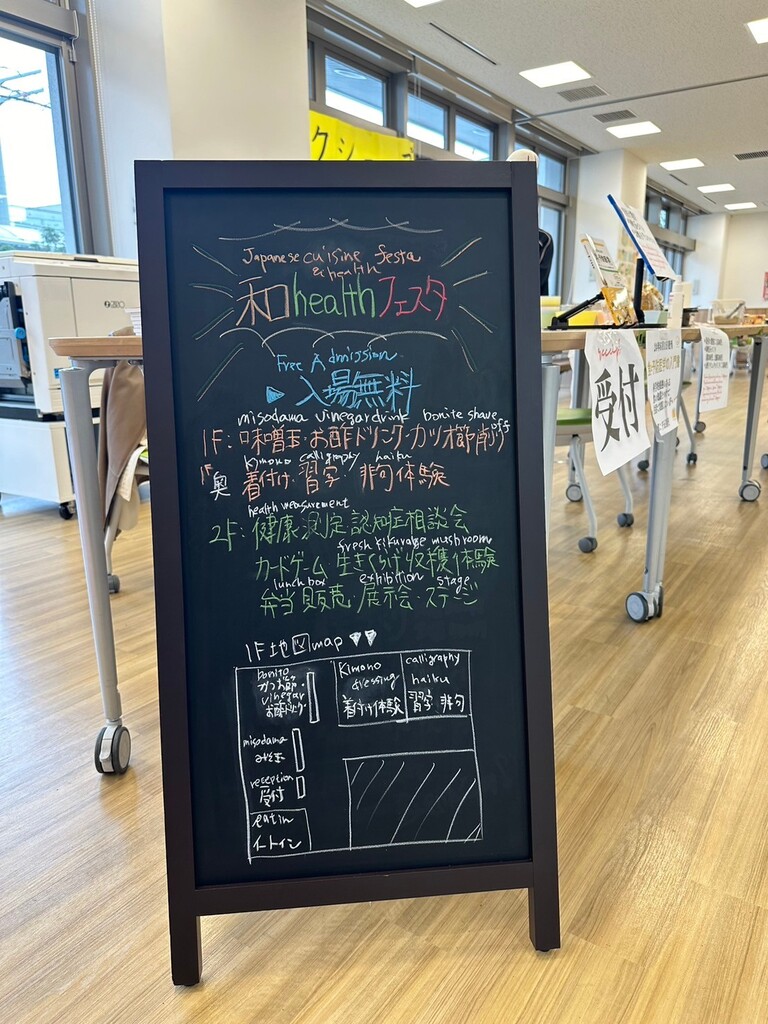 クショ
Japanese cuisine festa
& health
和healthフェスタ
Free Admission
▷入場無料
misodama vinegar drink bonite shave off
1F:味噌玉・お酢ドリンク・カツオ節削り
1F奥 Kimono calligraphy haiku
着付け・習字・俳句体験
health measurement
2F:健康測定・認知症相談会
fresh kikurage mushroom
カードゲーム・生きくらげ収穫体験
lunch box exhibition stage
弁当販売・展示会・ステージ
1F地図map
bonito
かつお節・
vinegar
お酢ドリンク
Kimono
dressing
着付け体験
calligraphy
haiku
習字 俳句
misodama
みそ玉
reception
受付
eatin
イートイン
受付